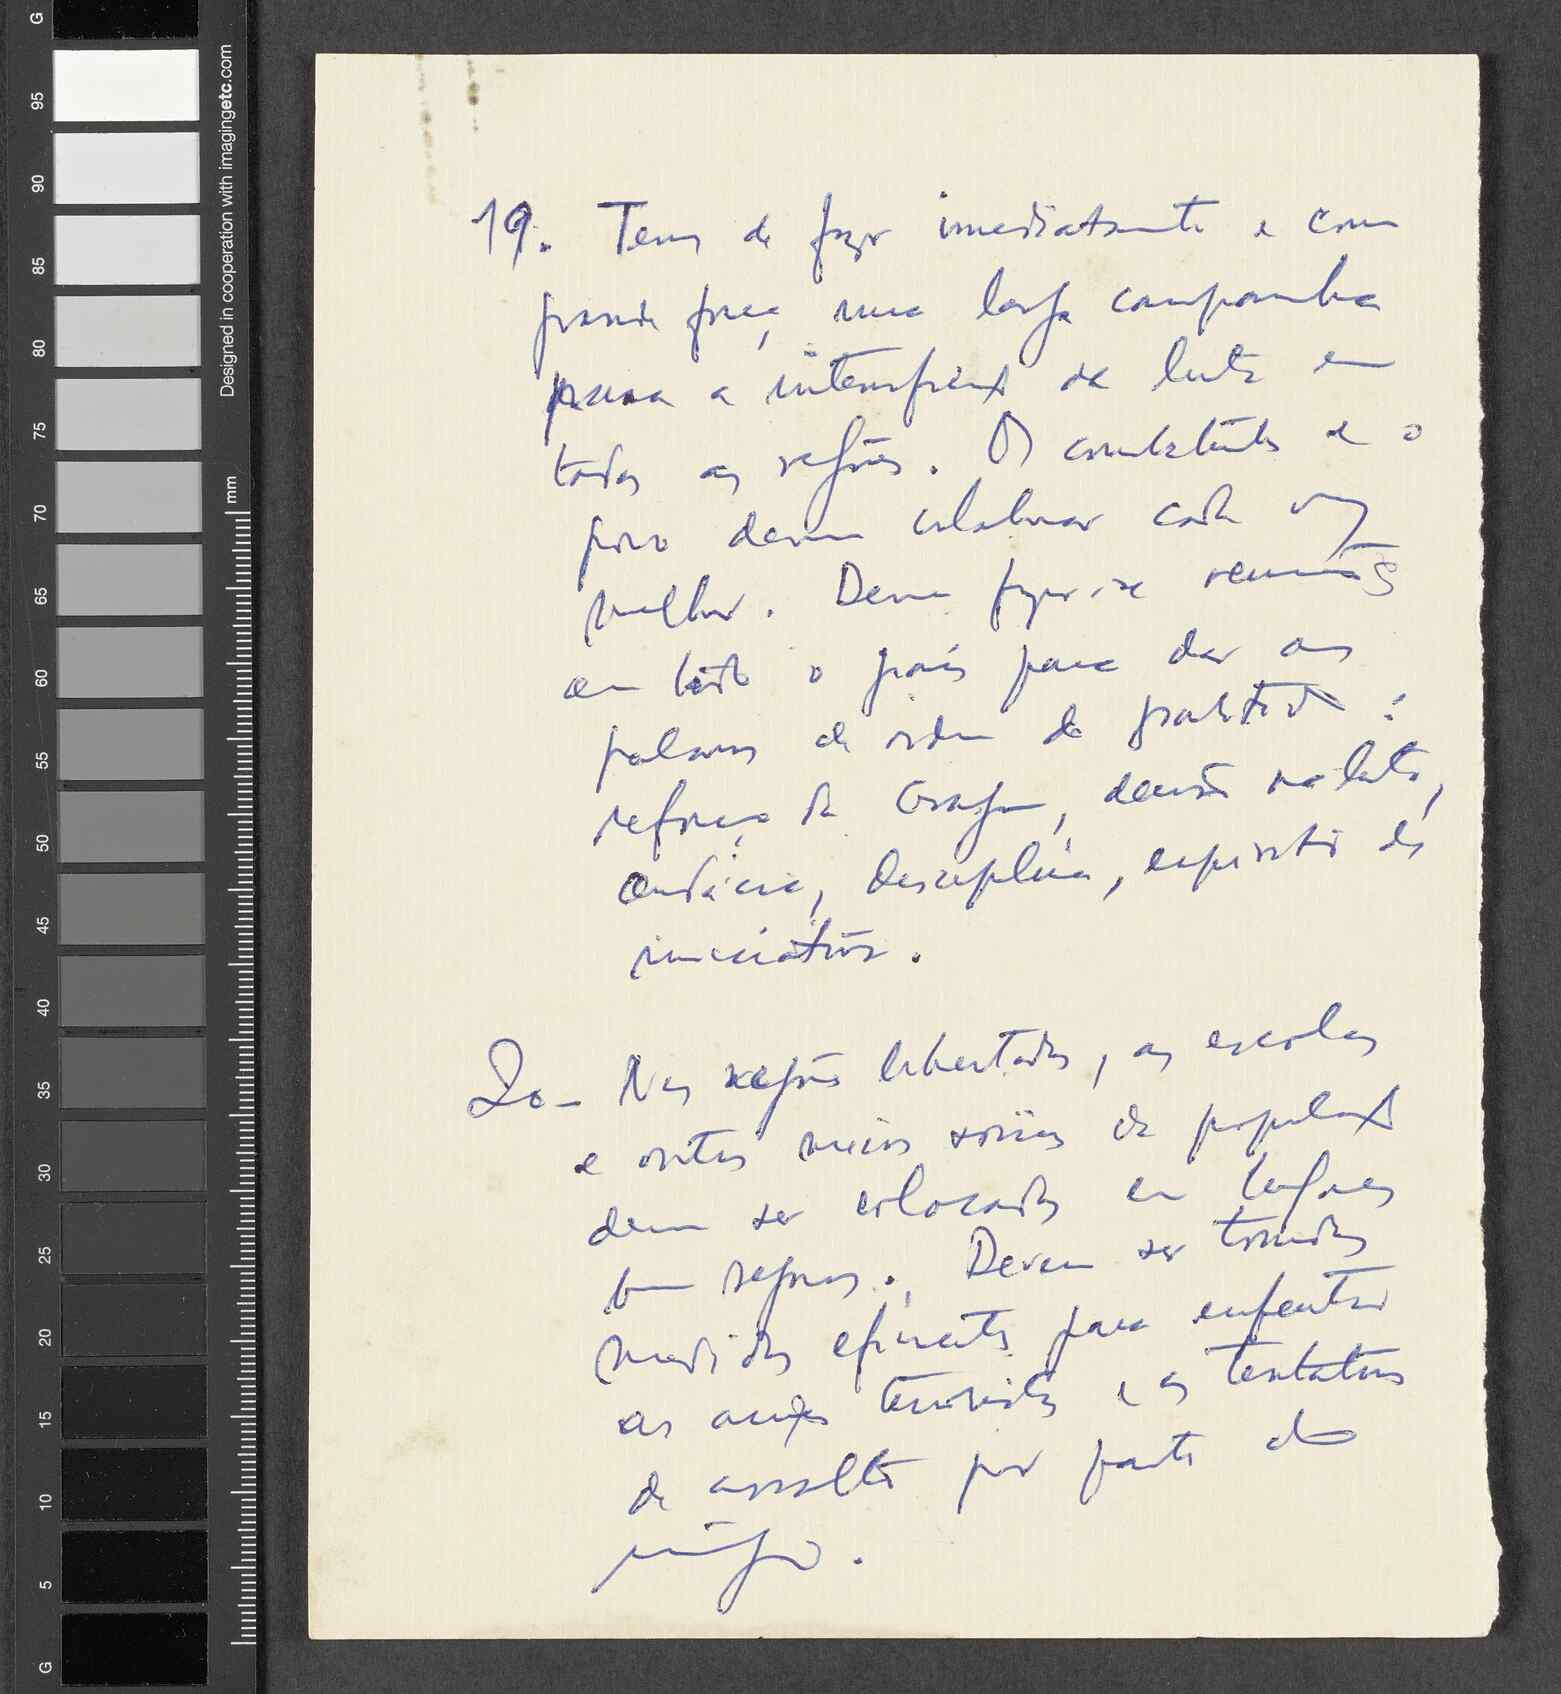 19. Temos de fazer imediatamente e com
grande força, uma larga campanha
para a intensificação da luta em
todas as regiões. Os combatentes e o
povo devem colaborar cada vez
melhor. Devem fazer-se reuniões
em todo o país para dar as
palavras de ordem do partido:
reforço da coragem, decisão na luta,
audácia, disciplina, espírito de
iniciativa.
20- Nas regiões libertadas, as escolas
e outros meios sociais da população
devem ser colocados em lugares
bem seguros. Devem ser tomadas
medidas eficientes para enfrentar
as acções terroristas e as tentativas
de assalto por parte do
inimigo.
G
95
90
85
80
75
70
65
60
55
50
45
40
35
30
25
20
15
10
5
G
mm
Designed in cooperation with imagingetc.com